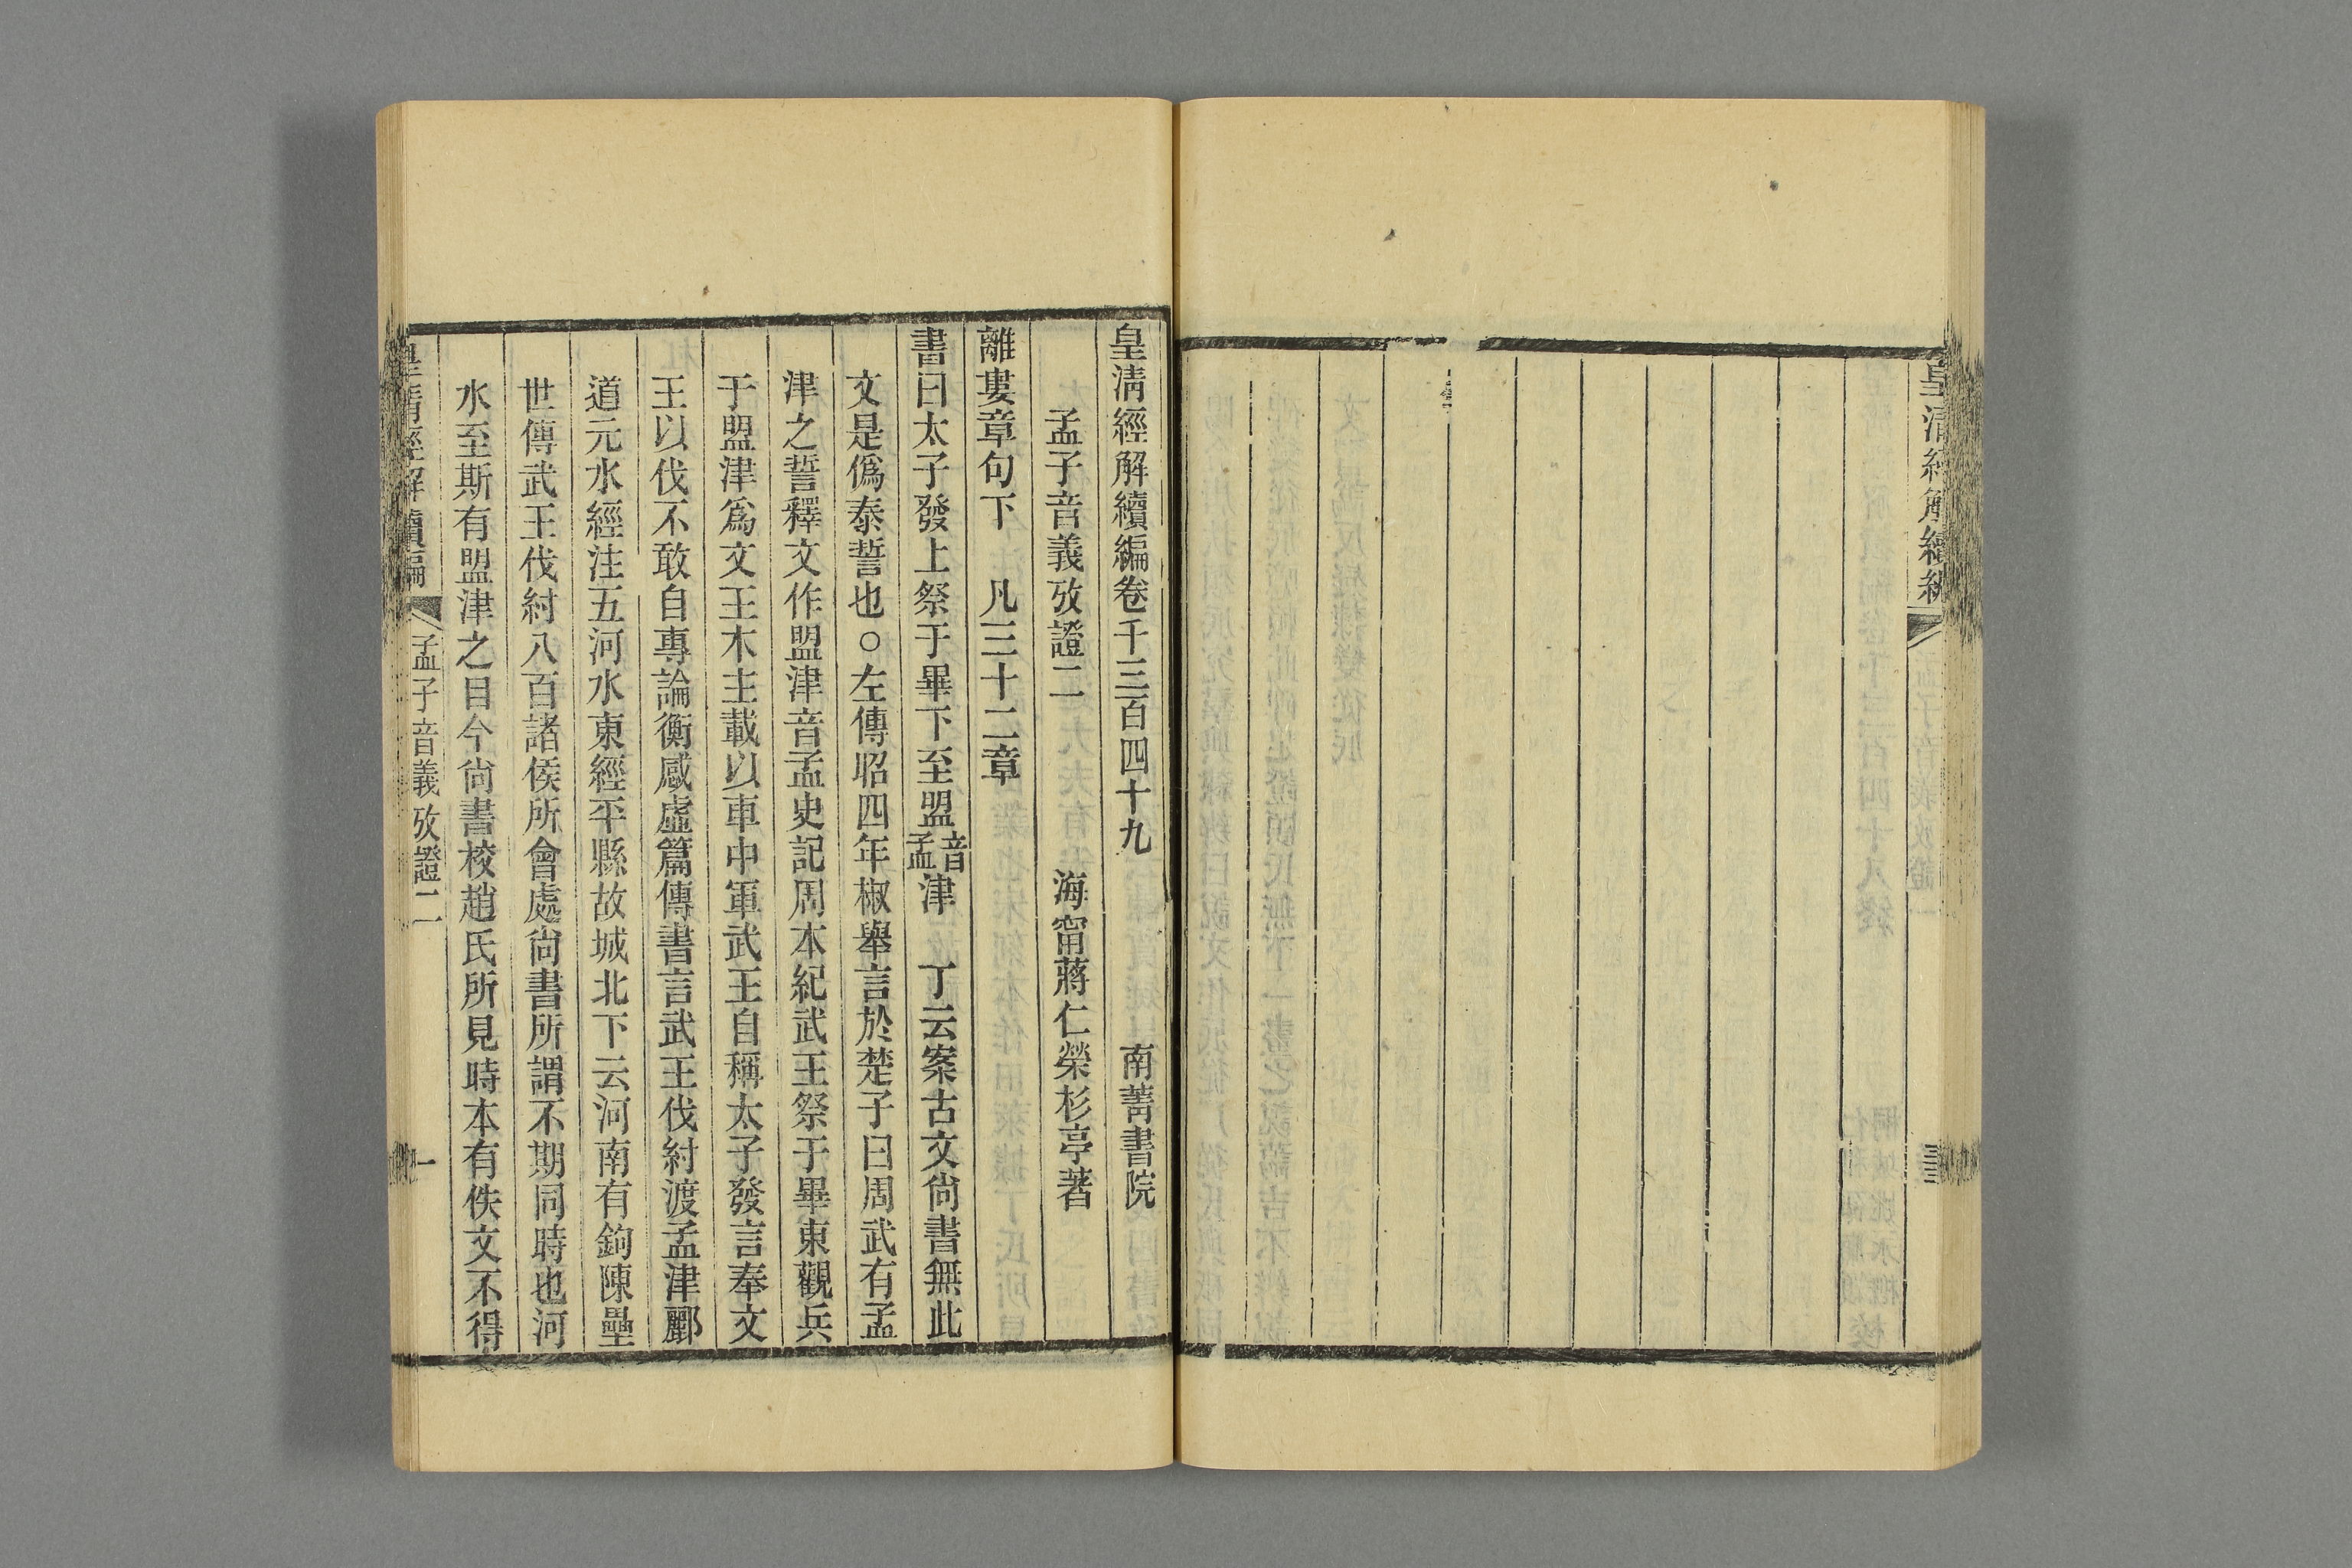 皇清經解續編卷千三百四十九　南菁書院
孟子音義攷證二　海甯蔣仁榮杉亭著
離婁章句下　凡三十二章
書曰太子發上祭于畢下至盟音孟津　丁云案古文尙書無此
文是僞泰誓也○左傳昭四年椒舉言於楚子曰周武有孟
津之誓釋文作盟津音孟史記周本紀武王祭于畢東觀兵
于盟津爲文王木主載以車中軍武王自稱太子發言奉文
王以伐不敢自專論衡感虛篇傳書言武王伐紂渡孟津酈
道元水經注五河水東經平縣故城北下云河南有鉤陳壘
世傳武王伐紂八百諸侯所會處尙書所謂不期同時也河
水至斯有盟津之目今尙書校趙氏所見時本有佚文不得
皇清經解續編　孟子音義攷證二　一